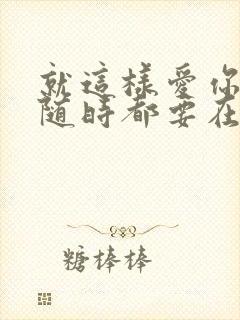 就這樣愛你
随時都要在
糖棒棒